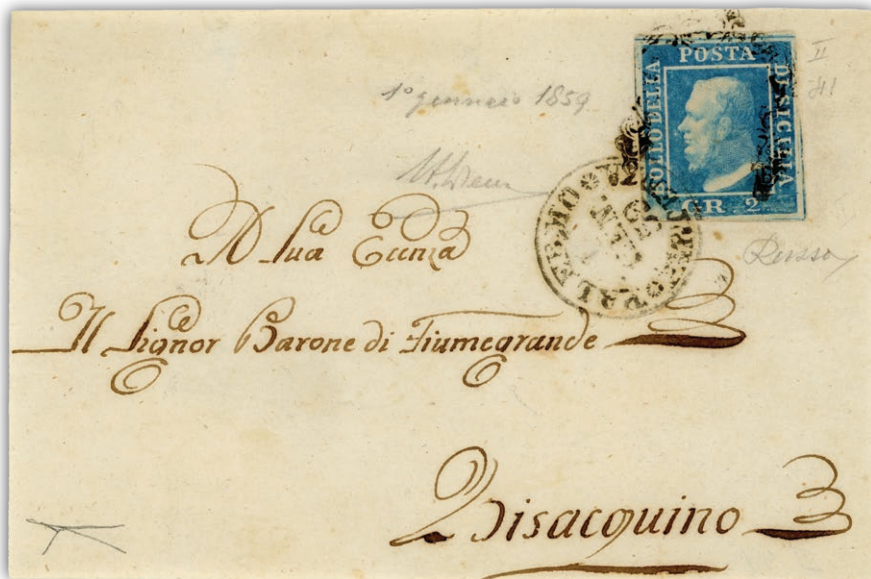 POSTA
BOLLO DELLA
DI SICILIA
GR. 2
II
1° gennaio 1859
A Sua Ecc.nza
Il Signor Barone di Fiumegrande
Bisacquino
Russo